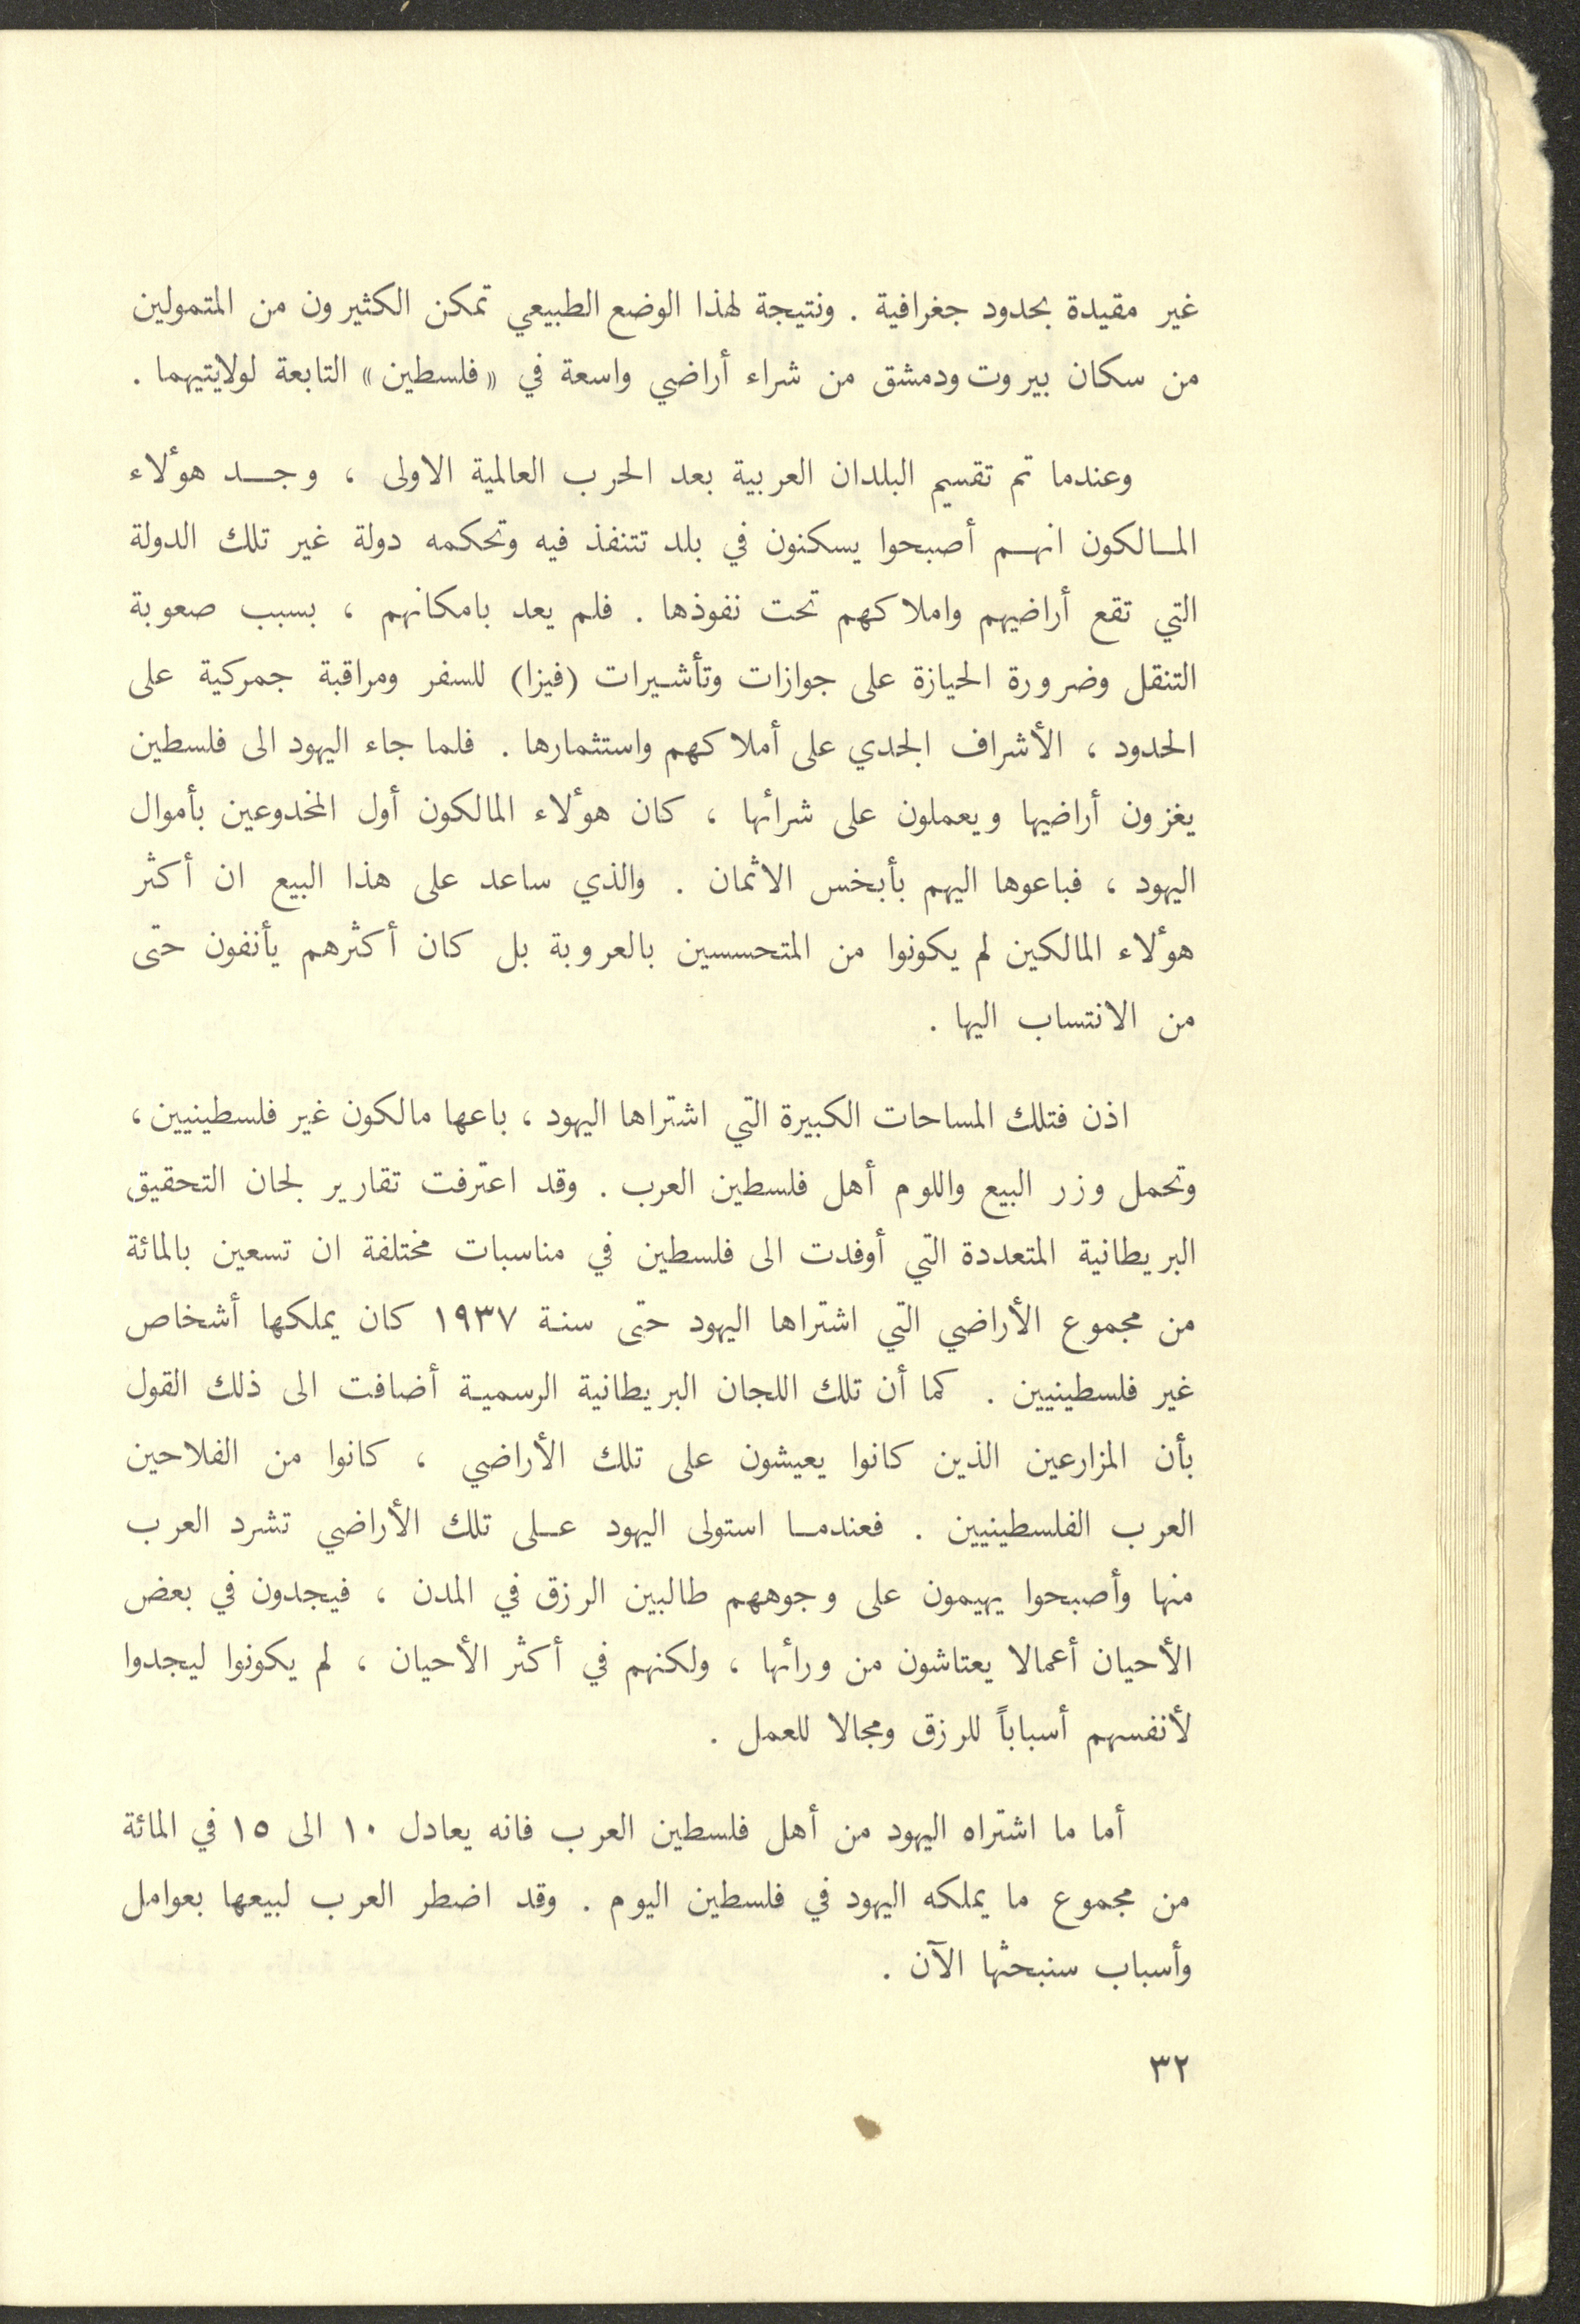 غير مقيدة بحدود جغرافية . ونتيجة لهذا الوضع الطبيعي تمكن الكثيرون من المتمولين
من سكان بيروت ودمشق من شراء أراضي واسعة في «فلسطين» التابعة لولايتيهما .
وعندما تم تقسيم البلدان العربية بعد الحرب العالمية الاولى ، وجد هؤلاء
المالكون انهم أصبحوا يسكنون في بلد تتنفذ فيه وتحكمه دولة غير تلك الدولة
التي تقع أراضيهم واملاكهم تحت نفوذها . فلم يعد بامكانهم ، بسبب صعوبة
التنقل وضرورة الحيازة على جوازات وتأشيرات (فيزا) للسفر ومراقبة جمركية على
الحدود ، الأشراف الجدي على أملاكهم واستثمارها . فلما جاء اليهود الى فلسطين
يغزون أراضيها ويعملون على شرائها ، كان هؤلاء المالكون أول المخدوعين بأموال
اليهود ، فباعوها اليهم بأبخس الاثمان . والذي ساعد على هذا البيع ان أكثر
هؤلاء المالكين لم يكونوا من المتحسسين بالعروبة بل كان أكثرهم يأنفون حتى
من الانتساب اليها .
اذن فتلك المساحات الكبيرة التي اشتراها اليهود ، باعها مالكون غير فلسطينيين ،
وتحمل وزر البيع واللوم أهل فلسطين العرب . وقد اعترفت تقارير لجان التحقيق
البريطانية المتعددة التي أوفدت الى فلسطين في مناسبات مختلفة ان تسعين بالمائة
من مجموع الأراضي التي اشتراها اليهود حتى سنة ١٩٣٧ كان يملكها أشخاص
غير فلسطينيين . كما أن تلك اللجان البريطانية الرسمية أضافت الى ذلك القول
بأن المزارعين الذين كانوا يعيشون على تلك الأراضي ، كانوا من الفلاحين
العرب الفلسطينيين . فعندما استولى اليهود على تلك الأراضي تشرد العرب
منها وأصبحوا يهيمون على وجوههم طالبين الرزق في المدن ، فيجدون في بعض
الأحيان أعمالا يعتاشون من ورائها ، ولكنهم في أكثر الأحيان ، لم يكونوا ليجدوا
لأنفسهم أسباباً للرزق ومجالا للعمل .
أما ما اشتراه اليهود من أهل فلسطين العرب فانه يعادل ١٠ الى ١٥ في المائة
من مجموع ما يملكه اليهود في فلسطين اليوم . وقد اضطر العرب لبيعها بعوامل
وأسباب سنبحثها الآن .
٣٢